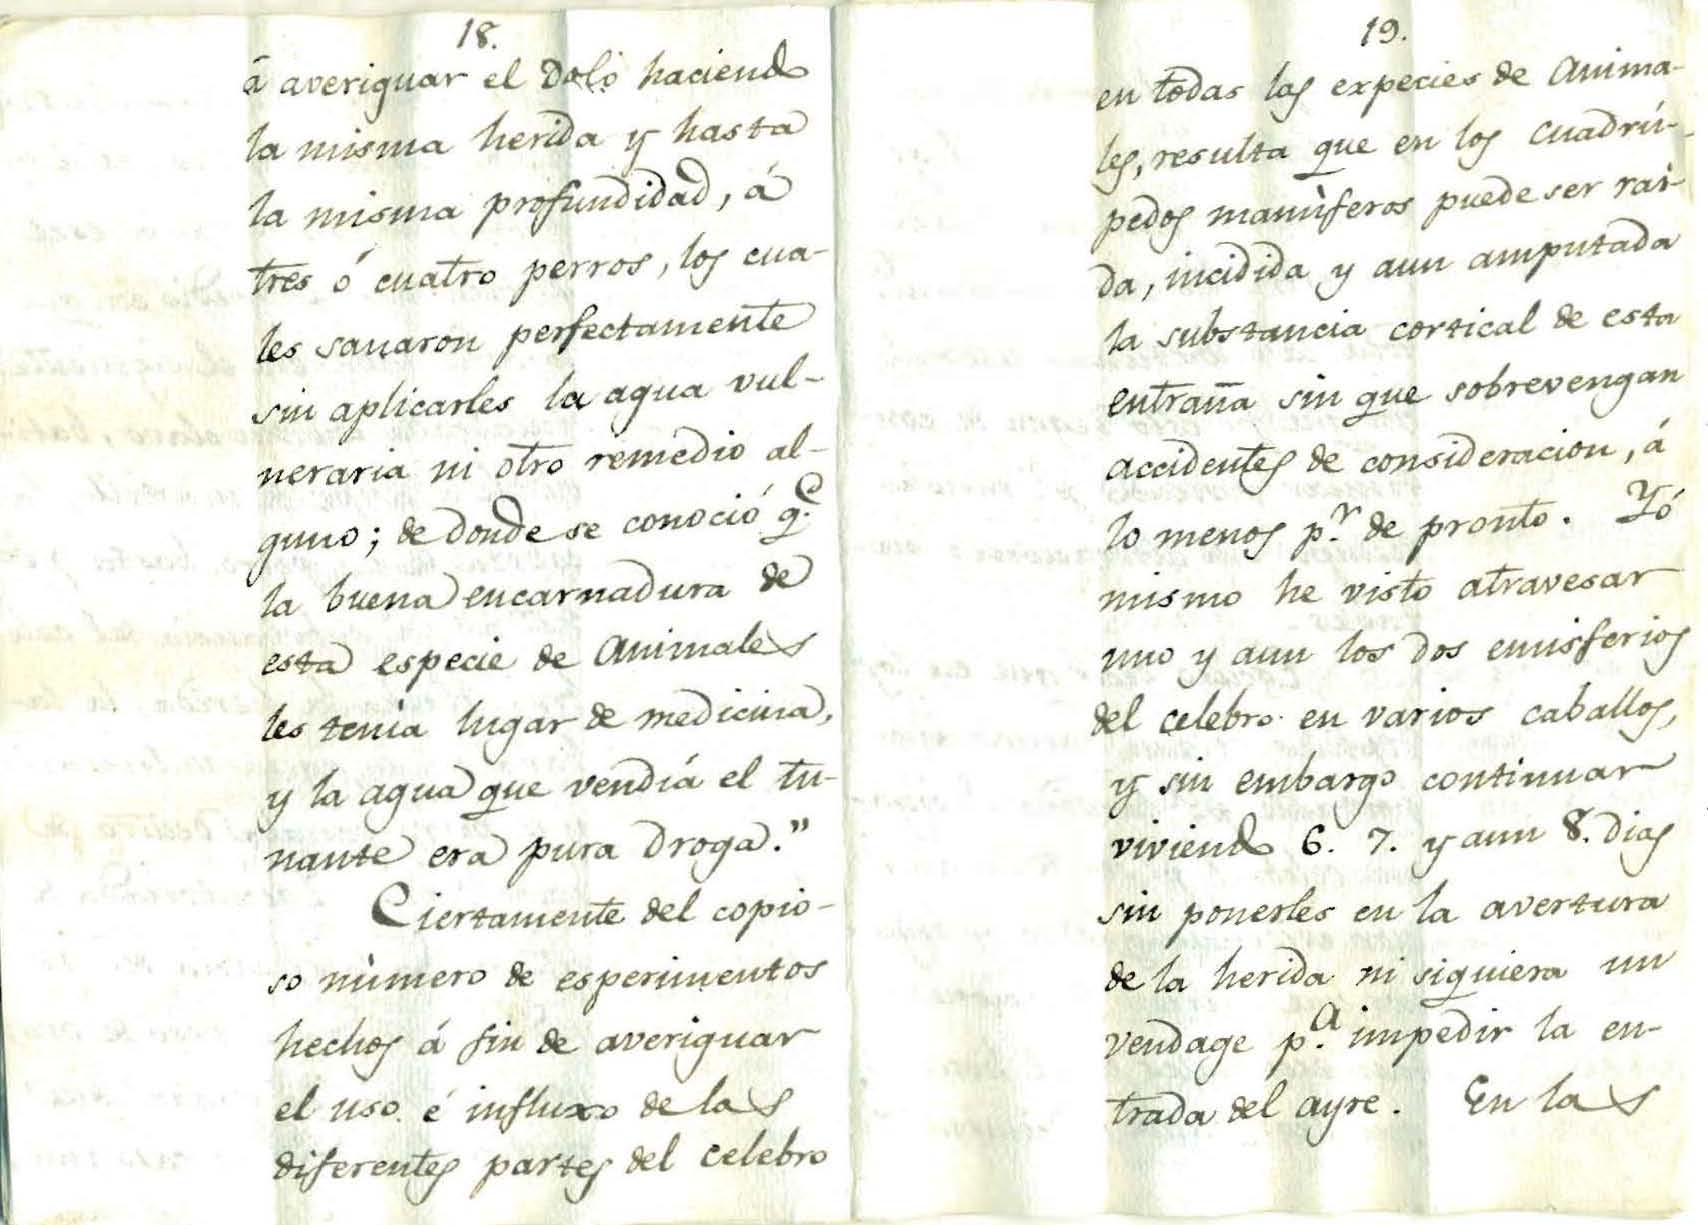 18.
á averiguar el Dolo haciendo
la misma herida y hasta
la misma profundidad, á
tres ó cuatro perros, los cua-
les sanaron perfectamente
sin aplicarles la agua vul-
neraria ni otro remedio al-
guno; de donde se conoció q.e
la buena encarnadura de
esta especie de Animales
les tenia lugar de medicina,
y la agua que vendía el tu-
nante era pura Droga."
Ciertamente del copio-
so nùmero de esperimentos
hechos á fin de averiguar
el uso é influxo de las
diferentes partes del celebro
19.
en todas las expecies de Anima-
les, resulta que en los cuadrú-
pedos mamìferos puede ser raì-
da, incidida y aun amputada
la substancia cortical de esta
entraña sin que sobrevengan
accidentes de consideracion, á
lo menos p.r de pronto. Yó
mismo he visto atravesar
uno y aun los dos emisferios
del celebro en varios caballos,
y sin embargo continuar
viviendo 6. 7. y aun 8. dias
sin ponerles en la avertura
de la herida ni siquiera un
vendage p.a impedir la en-
trada del ayre. En las